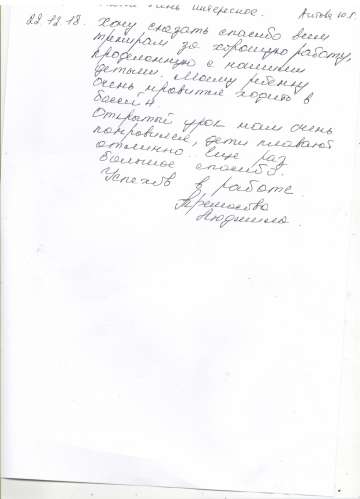 очень интересное. Аитова Ю.Г.
22.12.18. Хочу сказать спасибо всем
тренерам за хорошую работу,
проделанную с нашими
детьми. Моему ребенку
очень нравится ходить в
бассейн.
Открытый урок нам очень
понравился, дети плавают
отлично. Еще раз
большое спасибо.
Успехов в работе.
Людмила.